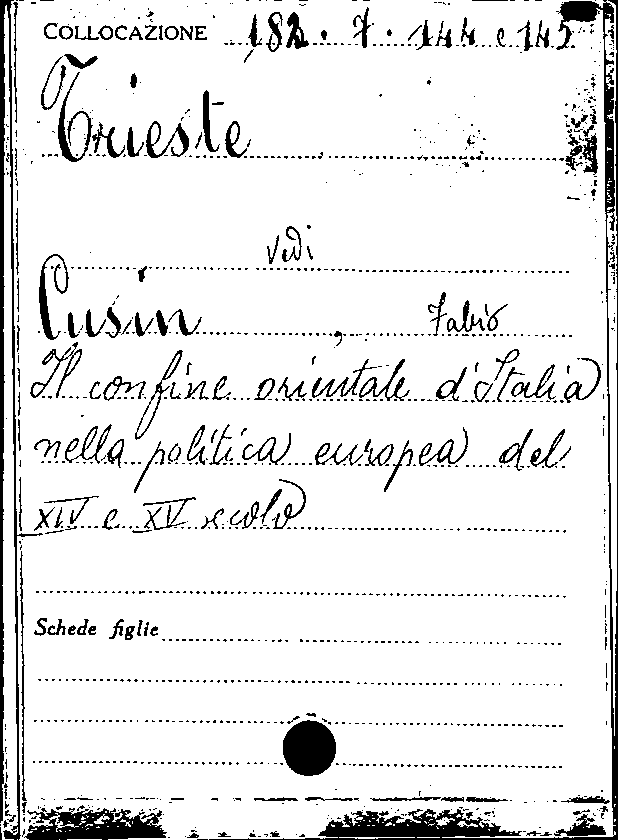 COLLOCAZIONE 182.7.144 e 145
Trieste
Vedi
Cusin, Fabio
Il confine orientale d'Italia
nella politica europea del
XIV e XV secolo
Schede figlie